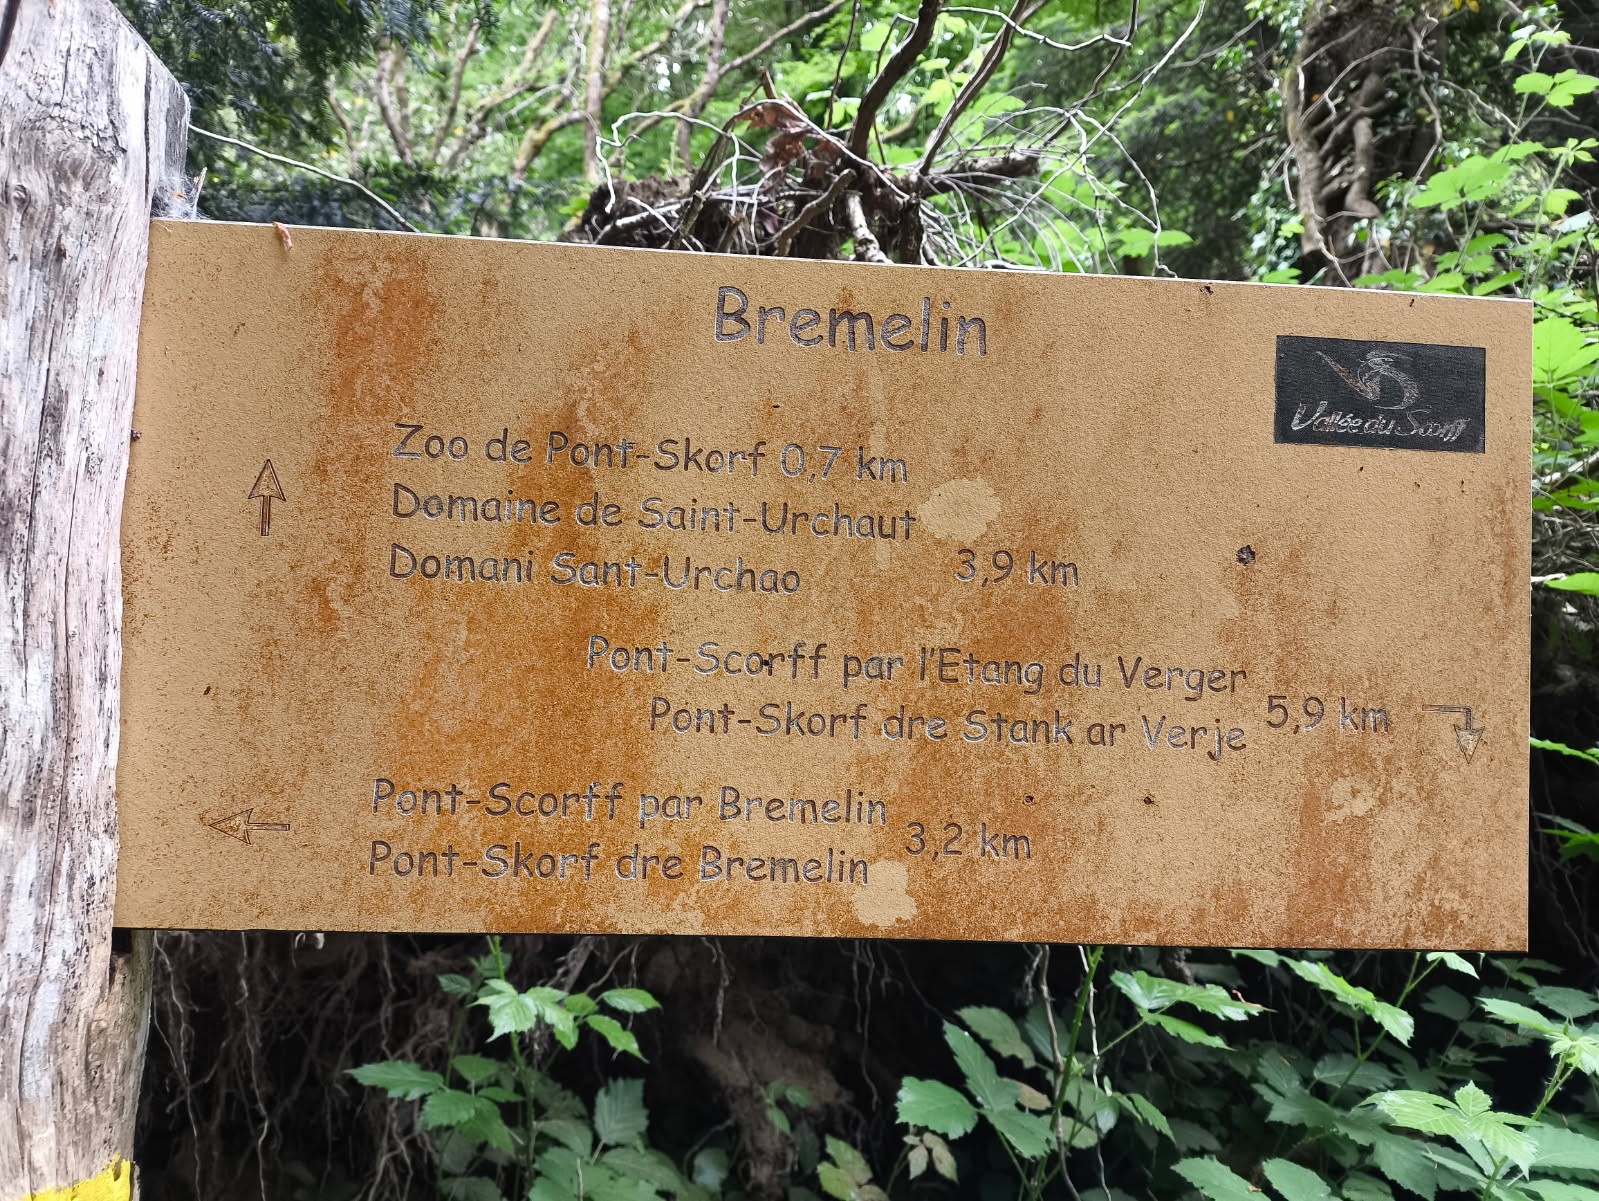 Bremelin
Vallée du Scorff
Zoo de Pont-Skorf 0,7 km
Domaine de Saint-Urchaut
Domani Sant-Urchao 3,9 km
Pont-Scorff par l'Etang du Verger
Pont-Skorf dre Stank ar Verje 5,9 km
Pont-Scorff par Bremelin
Pont-Skorf dre Bremelin 3,2 km